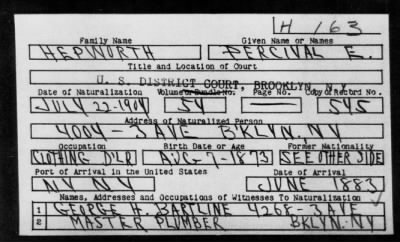 H 163
Family Name Given Name or Names
HEPWORTH PERCIVAL E.
Title and Location of Court
U. S. DISTRICT COURT, BROOKLYN, N.Y.
Date of Naturalization Volume or Bundle No. Page No. Copy of Record No.
JULY 22-1904 54 — 545
Address of Naturalized Person
4004 - 3 AVE B'KLYN. NY
Occupation Birth Date or Age Former Nationality
CLOTHING D'LR AUG 7-1873 SEE OTHER SIDE
Port of Arrival in the United States Date of Arrival
NY NY JUNE 1883
Names, Addresses and Occupations of Witnesses To Naturalization
1 GEORGE H. BARTLINE 4268-3 AVE
2 MASTER PLUMBER BKLYN. NY